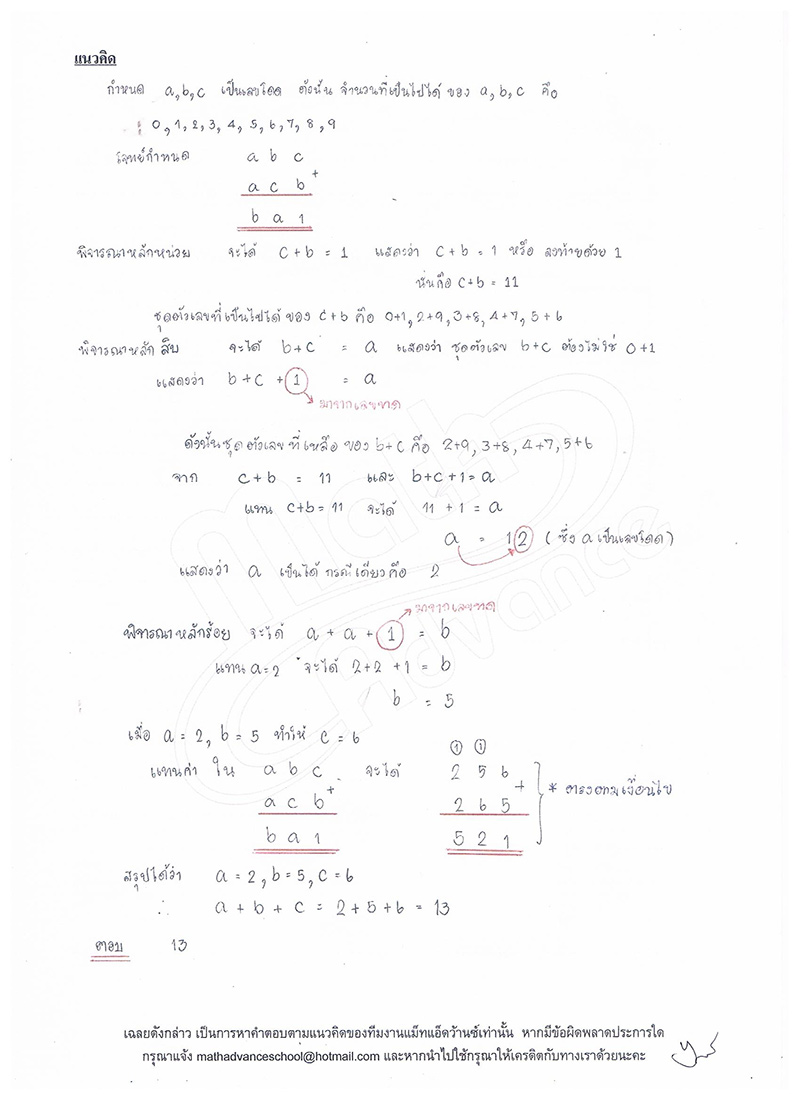 แนวคิด
กำหนด a,b,c เป็นเลขโดด ดังนั้น จำนวนที่เป็นไปได้ ของ a,b,c คือ
: 0,1,2,3,4,5,6,7,8,9
โจทย์กำหนด a b c
a c b +
b a 1
พิจารณาหลักหน่วย จะได้ c+b = 1 แสดงว่า c+b = 1 หรือ ลงท้ายด้วย 1
นั่นคือ c+b = 11
ชุดตัวเลขที่เป็นไปได้ ของ c+b คือ 0+1, 2+9, 3+8, 4+7, 5+6
พิจารณาหลัก สิบ จะได้ b+c = a แสดงว่า ชุดตัวเลข b+c ต้องไม่ใช่ 0+1
แสดงว่า b+c+1 = a
มาจากเลขทด
ดังนั้นชุดตัวเลขที่เหลือ ของ b+c คือ 2+9, 3+8, 4+7, 5+6
จาก c+b = 11 และ b+c+1 = a
แทน c+b = 11 จะได้ 11 + 1 = a
a = 12 (ซึ่ง a เป็นเลขโดด)
แสดงว่า a เป็นได้ กรณีเดียวคือ 2
มาจากเลขทด
พิจารณาหลักร้อย จะได้ a + a + 1 = b
แทน a=2 จะได้ 2+2+1 = b
b = 5
เมื่อ a = 2, b = 5 ทำให้ c = 6
1 1
แทนค่า ใน a b c จะได้ 2 5 6
a c b + 2 6 5 + * ตรงตามเงื่อนไข
b a 1 5 2 1
สรุปได้ว่า a = 2, b = 5, c = 6
∴ a + b + c = 2 + 5 + 6 = 13
ตอบ 13
Math Advance
เฉลยดังกล่าว เป็นการหาคำตอบตามแนวคิดของทีมงานแม็ทแอ็ดว้านซ์เท่านั้น หากมีข้อผิดพลาดประการใด
กรุณาแจ้ง mathadvanceschool@hotmail.com และหากนำไปใช้กรุณาให้เครดิตกับทางเราด้วยนะคะ